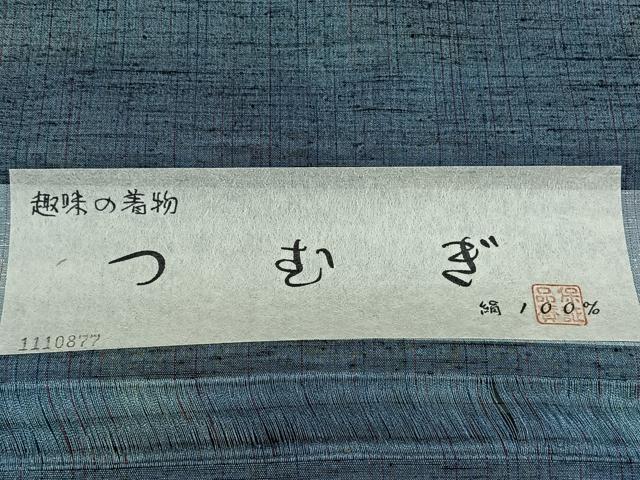 趣味の着物
つむぎ
絹100%
1110877